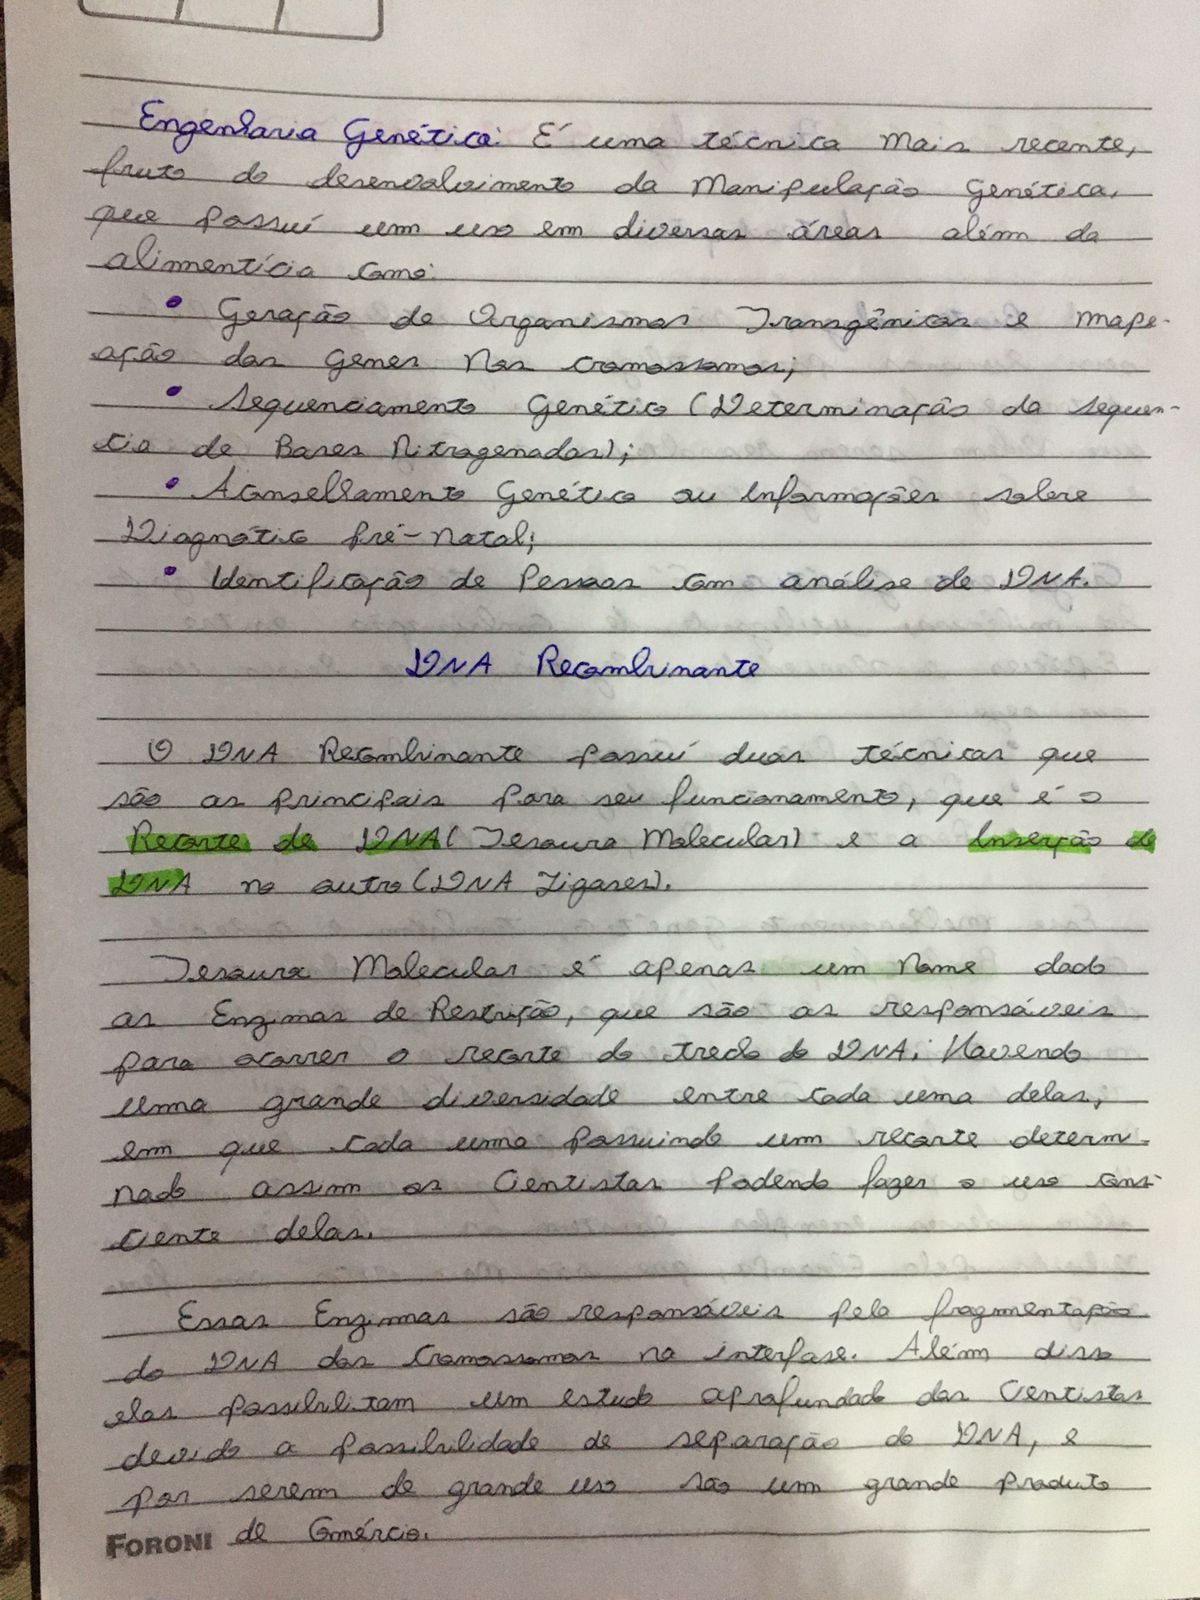 Engenharia Genética: É uma técnica mais recente,
fruto do desenvolvimento da Manipulação Genética,
que possuí um uso em diversas áreas além da
alimentícia como:
• Geração de Organismos Transgênicos e mape-
ação dos Genes nos cromossomos;
• Sequenciamento Genético (Determinação da sequen-
cia de Bases Nitrogenadas);
• Aconselhamento Genético ou Informações sobre
Diagnóstico Pré-Natal;
• Identificação de Pessoas com análise de DNA.
DNA Recombinante
O DNA Recombinante possuí duas técnicas que
são as principais para seu funcionamento, que é o
Recorte de DNA (Tesoura Molecular) e a Inserção de
DNA no outro (DNA Ligases).
Tesoura Molecular é apenas um nome dado
as Enzimas de Restrição, que são as responsáveis
para ocorrer o recorte do trecho do DNA. Havendo
uma grande diversidade entre cada uma delas,
em que cada uma possuindo um recorte determ-
nado assim os Cientistas podendo fazer o uso cons-
ciente delas.
Essas Enzimas são responsáveis pela fragmentação
do DNA dos Cromossomos na interfase. Além disso
elas possibilitam um estudo aprofundado dos Cientistas
devido a possibilidade de separação do DNA, e
por serem de grande uso são um grande produto
de Comércio.
FORONI